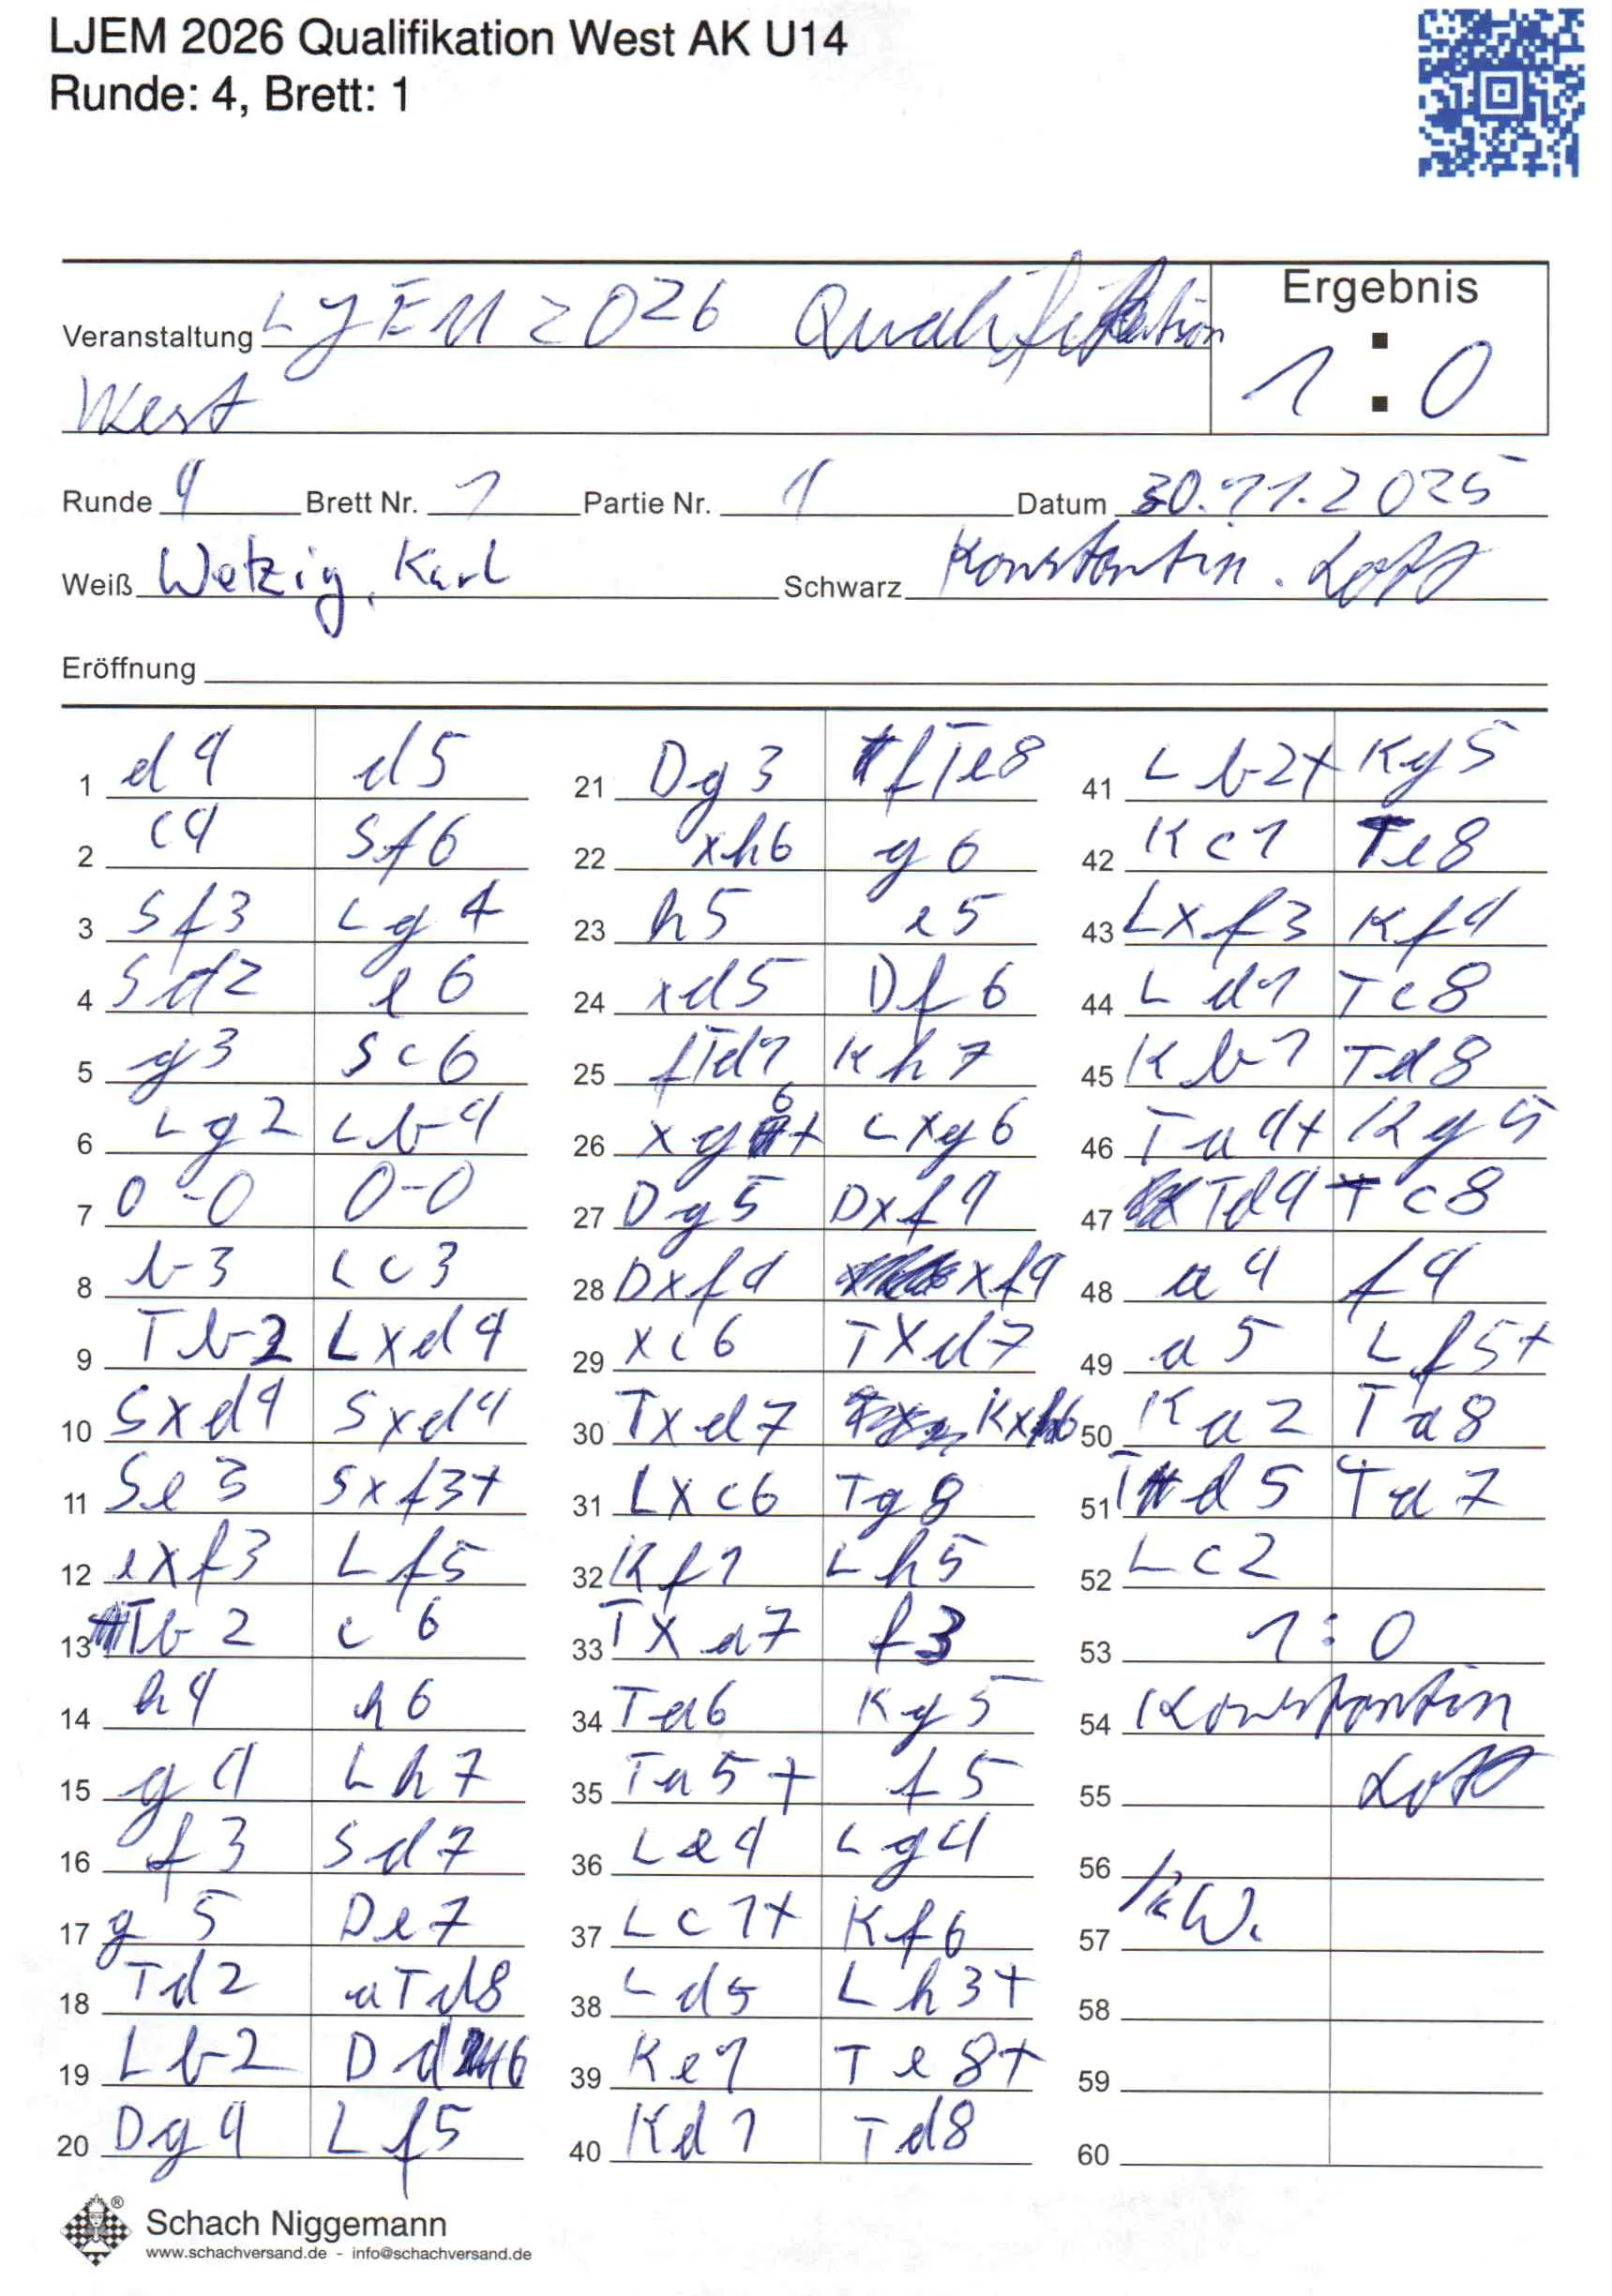 LJEM 2026 Qualifikation West AK U14
Runde: 4, Brett: 1
Ergebnis
Veranstaltung LJEM 2026 Qualifikation
West
1 : 0
Runde 4 Brett Nr. 1 Partie Nr. 1 Datum 30.11.2025
Weiß Wetzig, Karl Schwarz Konstantin. Lott
Eröffnung
1 d4 d5
2 c4 Sf6
3 Sf3 Lg4
4 Sd2 e6
5 g3 Sc6
6 Lg2 Lb4
7 0-0 0-0
8 b3 Lc3
9 Tb2 Lxd4
10 Sxd4 Sxd4
11 Se3 Sxf3+
12 exf3 Lf5
13 Tb2 c6
14 h4 h6
15 g4 Lh7
16 f3 Sd7
17 g5 De7
18 Td2 aTd8
19 Lb2 Dd6
20 Dg4 Lf5
21 Dg3 fTe8
22 xh6 g6
23 h5 e5
24 xd5 Df6
25 fTd1 Kh7
26 xg6+ Lxg6
27 Dg5 Dxf4
28 Dxf4 xf4
29 xc6 Txd7
30 Txd7 Kxh6
31 Lxc6 Tg8
32 Kf1 Lh5
33 Txa7 f3
34 Ta6 Kg5
35 Ta5+ f5
36 Le4 Lg4
37 Lc1+ Kf6
38 Ld5 Lh3+
39 Ke1 Te8+
40 Kd1 Td8
41 Lb2+ Kg5
42 Kc1 Te8
43 Lxf3 Kf4
44 Ld1 Tc8
45 Kb1 Td8
46 Ta4+ Kg5
47 Td4 Tc8
48 a4 f4
49 a5 Lf5+
50 Ka2 Ta8
51 Td5 Ta7
52 Lc2
53 1:0
54 Konstantin
55 Lott
56
57 K.W.
58
59
60
Schach Niggemann
www.schachversand.de - info@schachversand.de